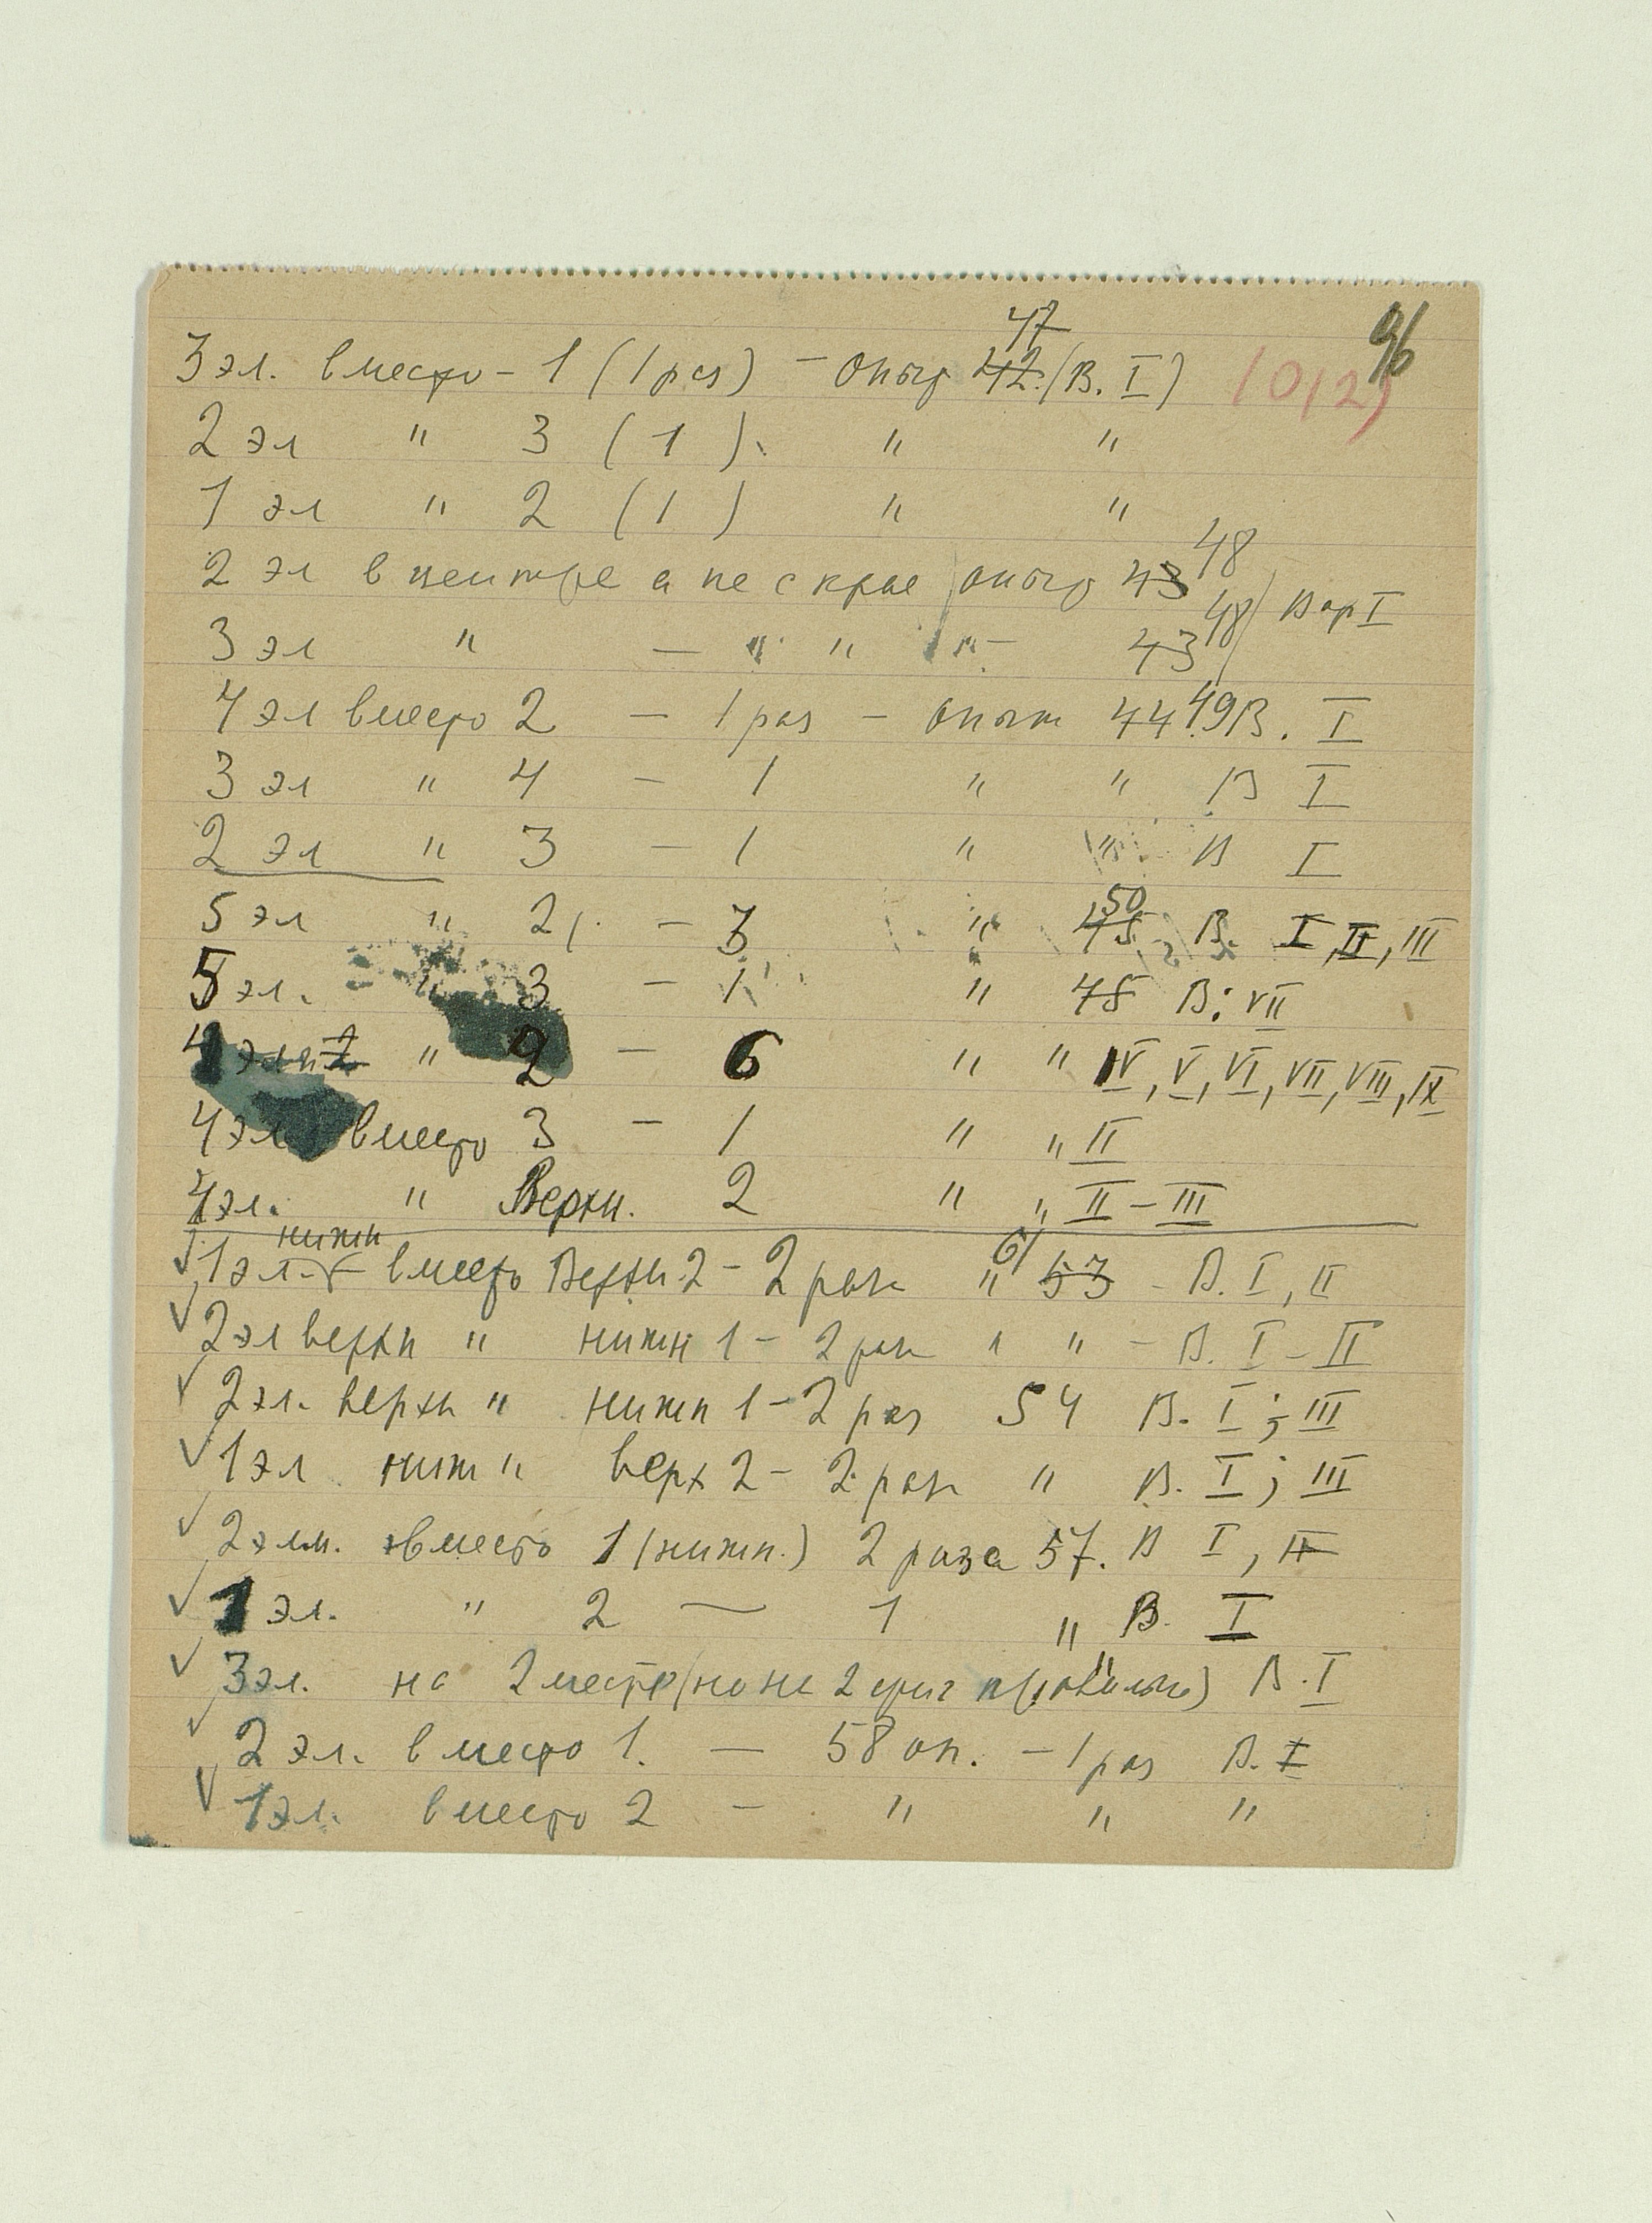 96
47
3 эл. вместо - 1 (1 раз) - опыт 42. (В. I) 10/2)
2 эл " 3 (1). " "
1 эл " 2 (1) " "
2 эл в центре а не с крае опыт 43 48
3 эл " — " " " - 43 48 Вар I
4 эл вместо 2 — 1 раз - опыт 44 49 В. I
3 эл " 4 — 1 " " В I
2 эл " 3 — 1 " " В I
5 эл " 2 — 3 " 45 50 В. I, II, III
5 эл. " 3 — 1 " 45 В. VII
4 эл 2 " 2 — 6 " " IV, V, VI, VII, VIII, IX
4 эл вместо 3 — 1 " " II
4 эл. " Верхн. 2 " " II - III
√ 1 эл. нижн вместо Верхн. 2 - 2 раза " 53 61 - В. I, II
√ 2 эл верхн " нижн 1 - 2 раза " " - В. I - II
√ 2 эл. верхн " нижн 1 - 2 раз 54 В. I; III
√ 1 эл нижн " верх 2 - 2 раза " В. I; III
√ 2 элм. вместо 1 (нижн.) 2 раза 57. В I, II
√ 1 эл. " 2 — 1 " В. I
√ 3 эл. на 2 месте (но не 2 ориг правильно) " В. I
√ 2 эл. вместо 1. — 58 оп. - 1 раз В. I
√ 1 эл. вместо 2 - " " "